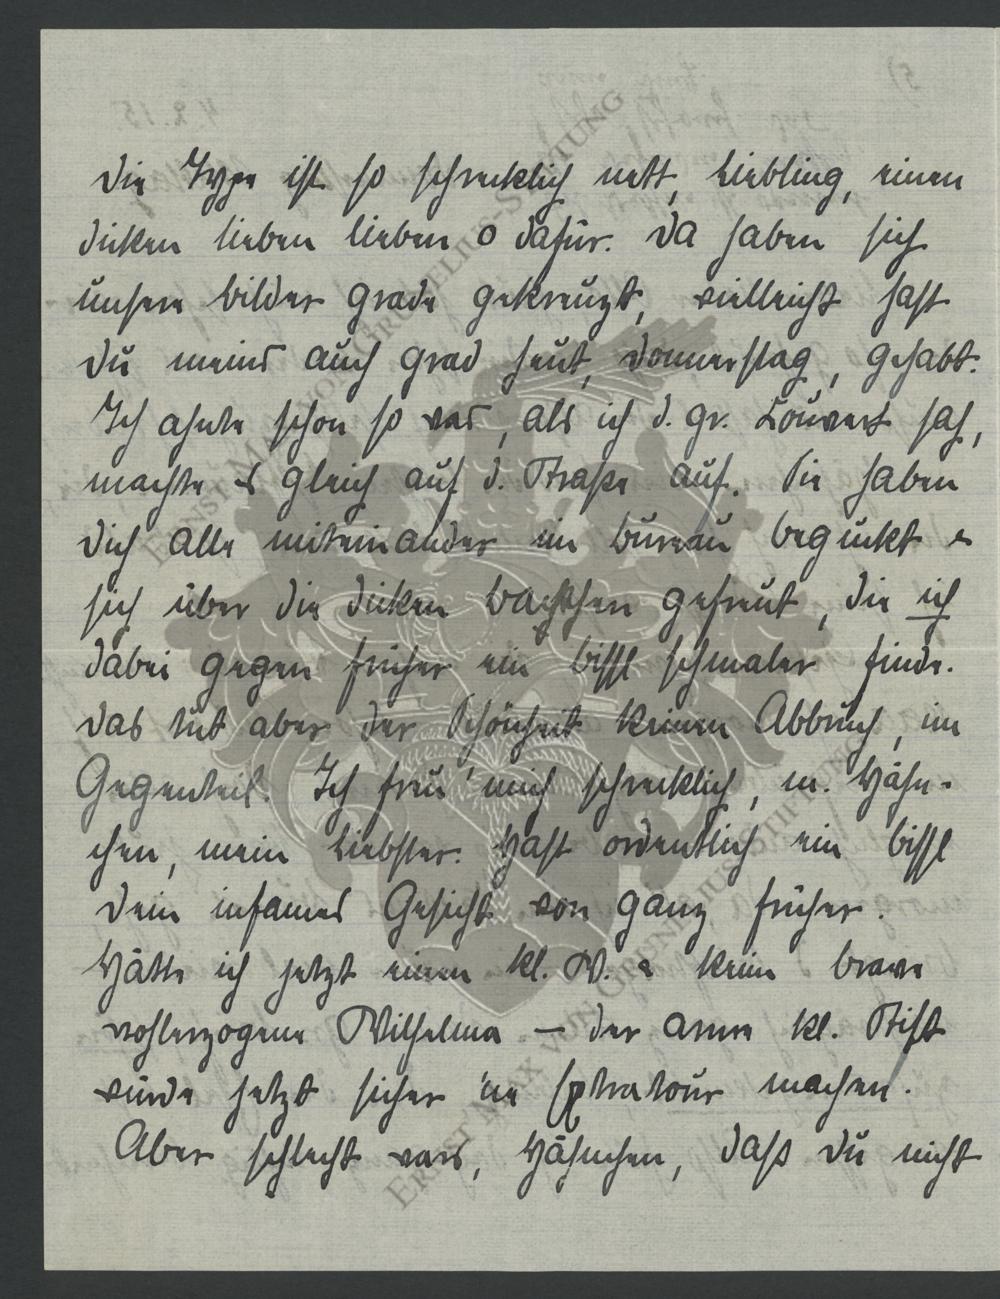 Die Type ist so schrecklich nett, Liebling, einen
dicken lieben lieben o dafür. Da haben sich
unsere Bilder grade gekreuzt, vielleicht hast
Du meins auch grad heut, Donnerstag, gehabt.
Ich ahnte schon so was, als ich d. gr. Couvert sah,
machte es gleich auf d. Straße auf. Sie haben
Dich alle miteinander im Bureau beguckt &
sich über die dicken Bäckchen gefreut, die ich
dabei gegen früher ein bissl schmaler finde.
Das tut aber der Schönheit keinen Abbruch, im
Gegenteil. Ich freu' mich schrecklich, m. Hähn-
chen, mein Liebster. Hast ordentlich ein bissl
Dein infames Gesicht von ganz früher.
Hätte ich jetzt einen kl. W. & keine brave
wohlerzogene Wilhelma — der arme kl. Stift
würde jetzt sicher 'ne Extratour machen.
Aber schlecht wars, Hähnchen, daß Du nicht
ERNST MAX VON GRUNELIUS-STIFTUNG
ERNST MAX VON GRUNELIUS-STIFTUNG
5)
4.2.15.